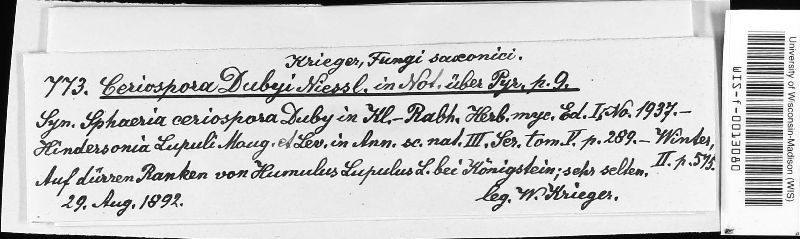 Krieger, Fungi saxonici.
773. Ceriospora Dubyi Niessl. in Not. über Pyr. p. 9.
Syn. Sphaeria ceriospora Duby in Kl.-Rabh. Herb. myc. Ed. I, No. 1937. –
Hindersonia Lupuli Moug. et Lev. in Ann. sc. nat. III. Ser. tom. V. p. 289. – Winter,
II. p. 575.
Auf dürren Ranken von Humulus Lupulus L. bei Königstein; sehr selten.
29. Aug. 1892. leg. W. Krieger.
University of Wisconsin-Madison (WIS)
WIS-f-0013080